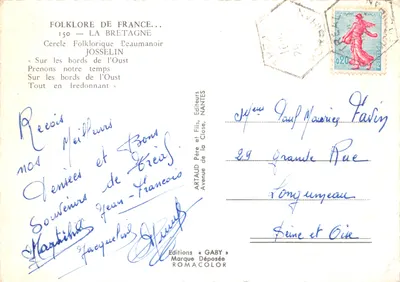 FOLKLORE DE FRANCE...
150 - LA BRETAGNE
Cercle Folklorique Beaumanoir
JOSSELIN
« Sur les bords de l'Oust
Prenons notre temps
Sur les bords de l'Oust
Tout en fredonnant »
Reçois
nos Meilleurs
Pensées et Bons
Souvenirs de
Jean-Francois
Jacqueline
ARTAUD Père et Fils, Editeurs
Avenue de la Close, NANTES
Editions "GABY"
Marque Déposée
ROMACOLOR
0,20
Paul Maurice
29 Grande Rue
Longjumeau
Seine et Oise